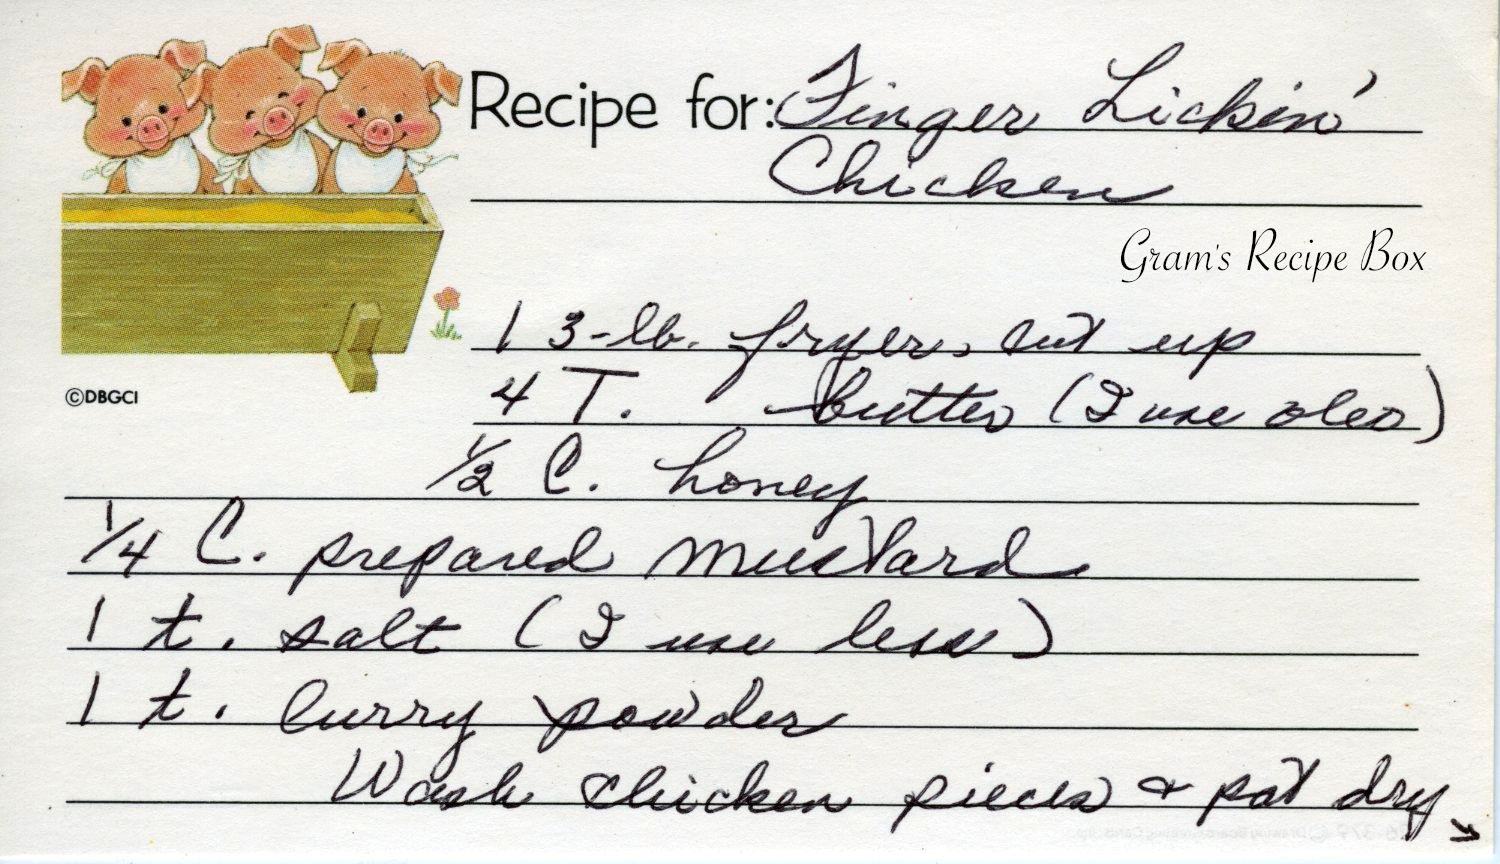 Recipe for: Finger Lickin'
Chicken
Gram's Recipe Box
1 3-lb. fryer, cut up
4 T. butter (I use oleo)
©DBGCI
1/2 C. honey
1/4 C. prepared mustard
1 t. salt (I use less)
1 t. curry powder
Wash chicken pieces & pat dry